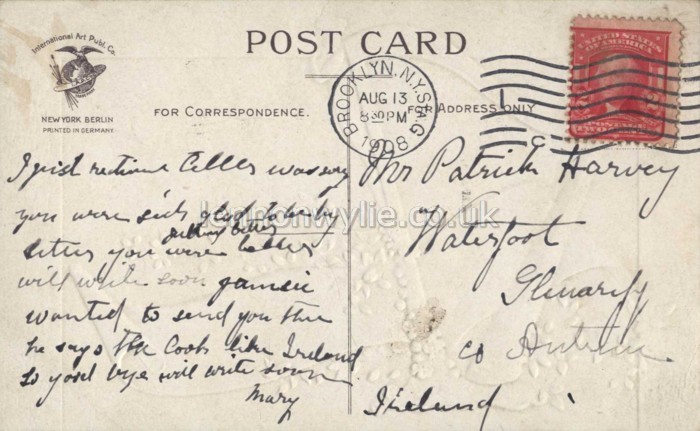 International Art Publ. Co.
NEW YORK BERLIN
PRINTED IN GERMANY
POST CARD
FOR CORRESPONDENCE.
FOR ADDRESS ONLY
BROOKLYN, N.Y. STA. G
AUG 13
8 30 PM
1908
UNITED STATES
OF AMERICA
POSTAGE
I was
you were sick glad to
getting better
you were
will write soon Jamsie
wanted to send you this
he says the Cools like Ireland
so good bye will write soon
Mary
Mr Patrick Harvey
Waterfoot
Glenariff
Co Antrim
Ireland
lennonwylie.co.uk